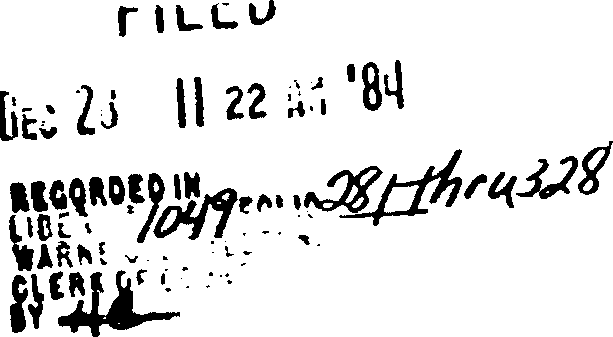 FILED
DEC 28 11 22 AM '84
RECORDED IN
LIBER 1049 FOLIO 281 thru 328
CLERK OF
BY